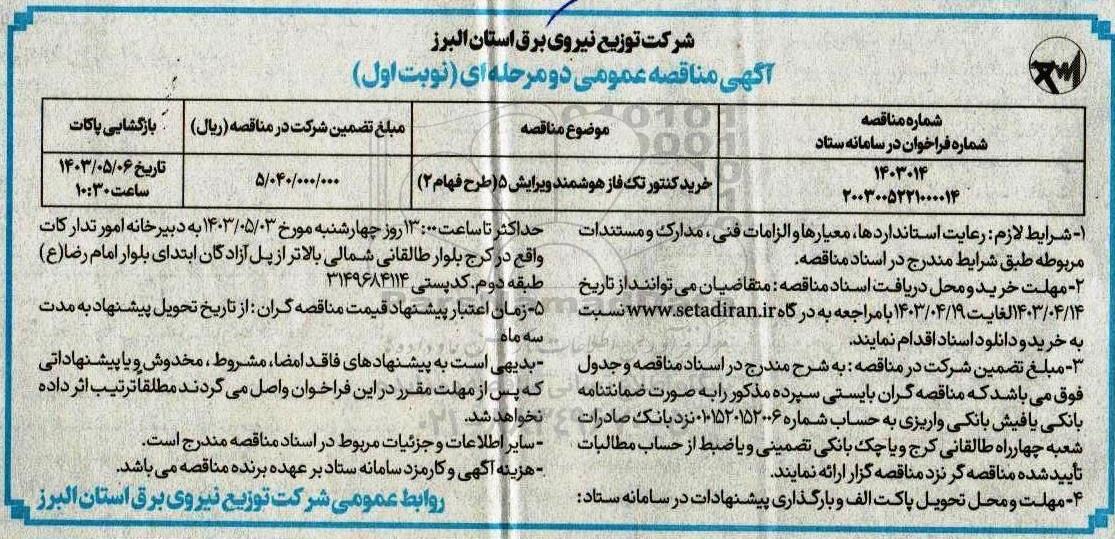 شرکت توزیع نیروی برق استان البرز
آگهی مناقصه عمومی دو مرحله ای (نوبت اول)
شماره مناقصه
شماره فراخوان در سامانه ستاد
موضوع مناقصه
مبلغ تضمین شرکت در مناقصه (ریال)
بازگشایی پاکات
۱۴۰۳۰۱۴
۲۰۰۳۰۰۵۲۲۱۰۰۰۰۱۴
خرید کنتور تک فاز هوشمند ویرایش ۵ (طرح فهام ۲)
۵/۰۴۰/۰۰۰/۰۰۰
تاریخ ۱۴۰۳/۰۵/۰۶
ساعت ۱۰:۳۰
۱- شرایط لازم: رعایت استانداردها، معیارها و الزامات فنی، مدارک و مستندات
مربوطه طبق شرایط مندرج در اسناد مناقصه.
۲- مهلت خرید و محل دریافت اسناد مناقصه: متقاضیان می توانند از تاریخ
۱۴۰۳/۰۴/۱۴ لغایت ۱۴۰۳/۰۴/۱۹ با مراجعه به درگاه www.setadiran.ir نسبت
به خرید و دانلود اسناد اقدام نمایند.
۳- مبلغ تضمین شرکت در مناقصه: به شرح مندرج در اسناد مناقصه و جدول
فوق می باشد که مناقصه گران بایستی سپرده مذکور را به صورت ضمانتنامه
بانکی یا فیش بانکی واریزی به حساب شماره ۰۱۰۱۵۲۰۱۵۲۰۰۶ نزد بانک صادرات
شعبه چهارراه طالقانی کرج و یا چک بانکی تضمینی و یا ضبط از حساب مطالبات
تأیید شده مناقصه گر نزد مناقصه گزار ارائه نمایند.
۴- مهلت و محل تحویل پاکت الف و بارگذاری پیشنهادات در سامانه ستاد:
حداکثر تا ساعت ۱۳:۰۰ روز چهارشنبه مورخ ۱۴۰۳/۰۵/۰۳ به دبیرخانه امور تدارکات
واقع در کرج بلوار طالقانی شمالی بالاتر از پل آزادگان ابتدای بلوار امام رضا (ع)
طبقه دوم. کدپستی ۳۱۴۹۶۸۴۱۱۴
۵- زمان اعتبار پیشنهاد قیمت مناقصه گران: از تاریخ تحویل پیشنهاد به مدت
سه ماه
- بدیهی است به پیشنهادهای فاقد امضا، مشروط، مخدوش و یا پیشنهاداتی
که پس از مهلت مقرر در این فراخوان واصل می گردند مطلقا ترتیب اثر داده
نخواهد شد.
- سایر اطلاعات و جزئیات مربوط در اسناد مناقصه مندرج است.
- هزینه آگهی و کارمزد سامانه ستاد بر عهده برنده مناقصه می باشد.
روابط عمومی شرکت توزیع نیروی برق استان البرز